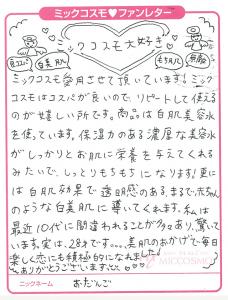 ミックコスモ♥ファンレター
ミックコスモ大好き
良コスパ
白美肌
もち肌
無敵
ミックコスモ愛用させて頂いています!ミック
コスモはコスパが良いので、リピートして使える
のが嬉しい所です。商品は白肌美容水
を使っています。保湿力のある濃厚な美容水
がしっかりとお肌に栄養を与えてくれる
みたいで、しっとりもちもちになります!更に
は白肌効果で透明感のある、まるで、赤ちゃん
のような白美肌に導いてくれます。私は
最近10代に間違われることが多々あり、驚いて
います。実は、28才です。…。美肌のおかげで毎日
楽しく恋にも積極的になれました!
ありがとうございます
MICCOSMO
ニックネーム
おだんご